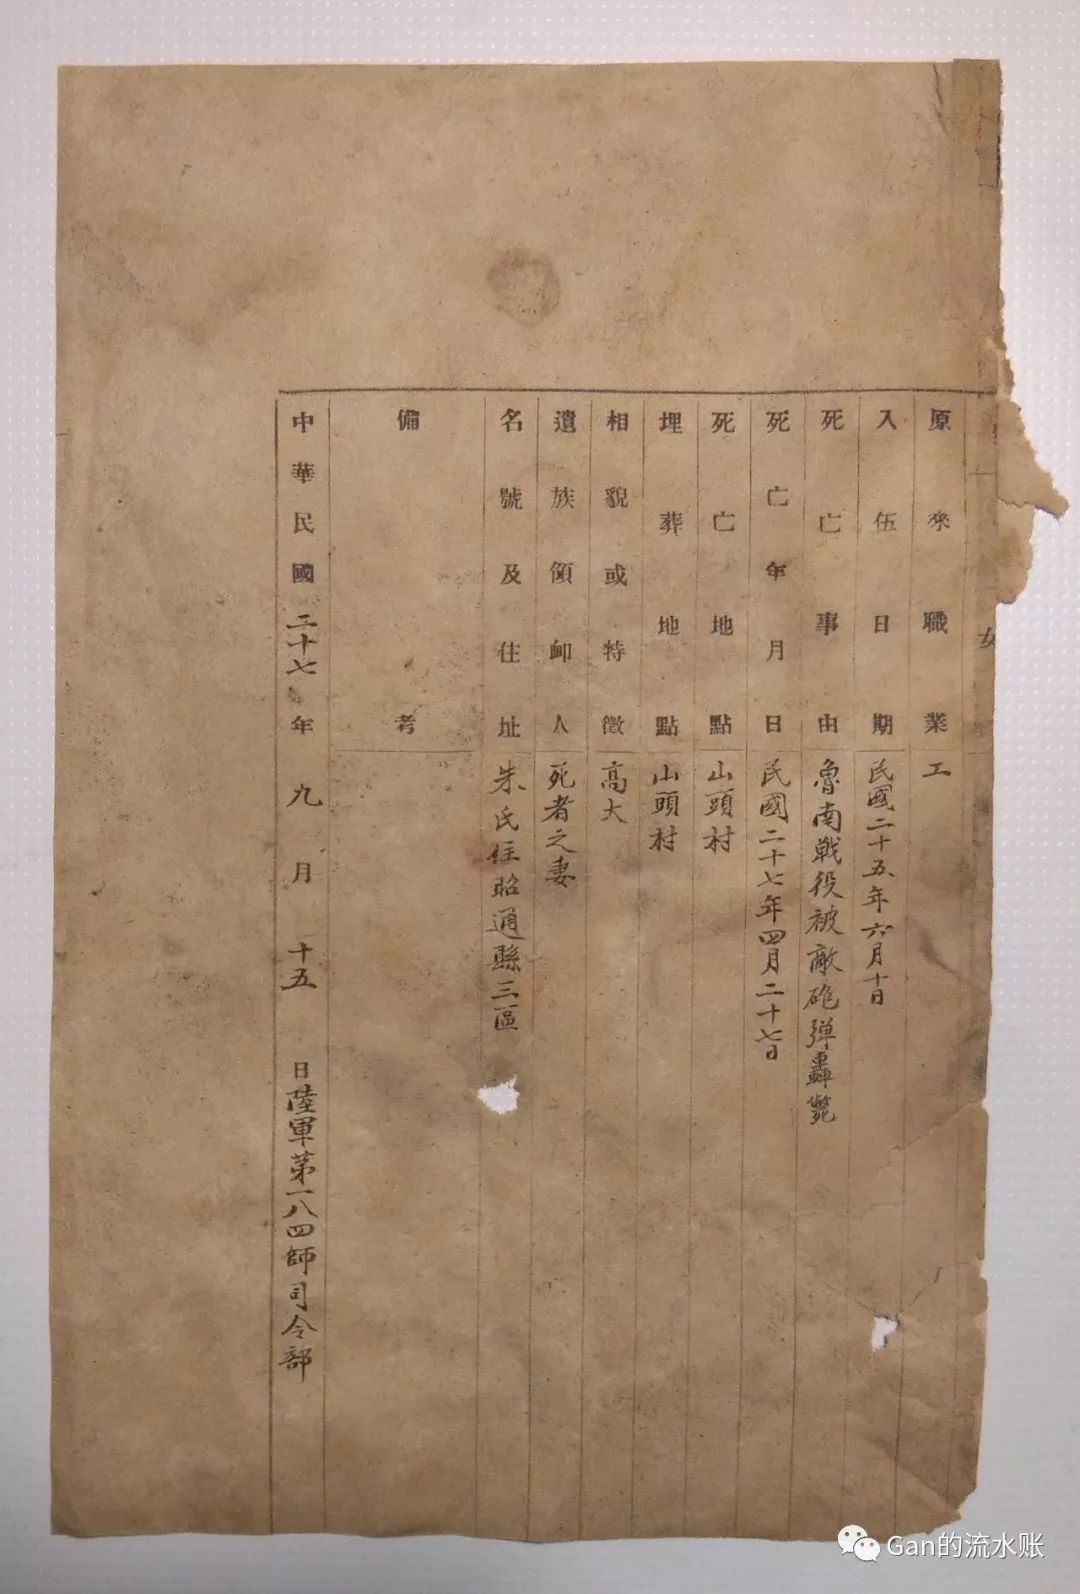 女
原來職業 工
入伍日期 民國二十五年六月十日
死亡事由 魯南戰役被敵砲弹轟毙
死亡年月日 民國二十七年四月二十七日
死亡地點 山頭村
埋葬地點 山頭村
相貌或特徵 高大
遺族領卹人 死者之妻
名號及住址 朱氏住昭通縣三區
備考
中華民國二十七年九月十五日陸軍第一八四師司令部
Gan的流水账